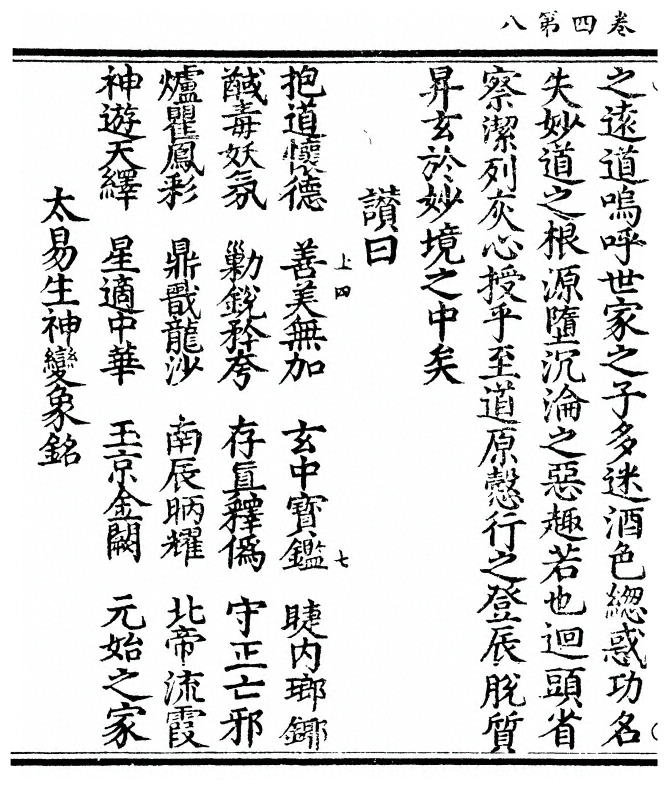 卷四第八
之遠道嗚呼世家之子多迷酒色緫惑功名
失妙道之根源墮沉淪之惡趣若也迴頭省
察潔列灰心授乎至道原慤行之登辰脫質
昇玄於妙境之中矣
讚曰
上四
七
抱道懷德 善美無加 玄中寶鑑 睫内瑯鎁
醎毒妖氛 勦銳矜夸 存眞釋僞 守正亡邪
爐瞿鳳彩 鼎戩龍沙 南辰昞耀 北帝流霞
神遊天繹 星適中華 玉京金闕 元始之家
太易生神變象銘